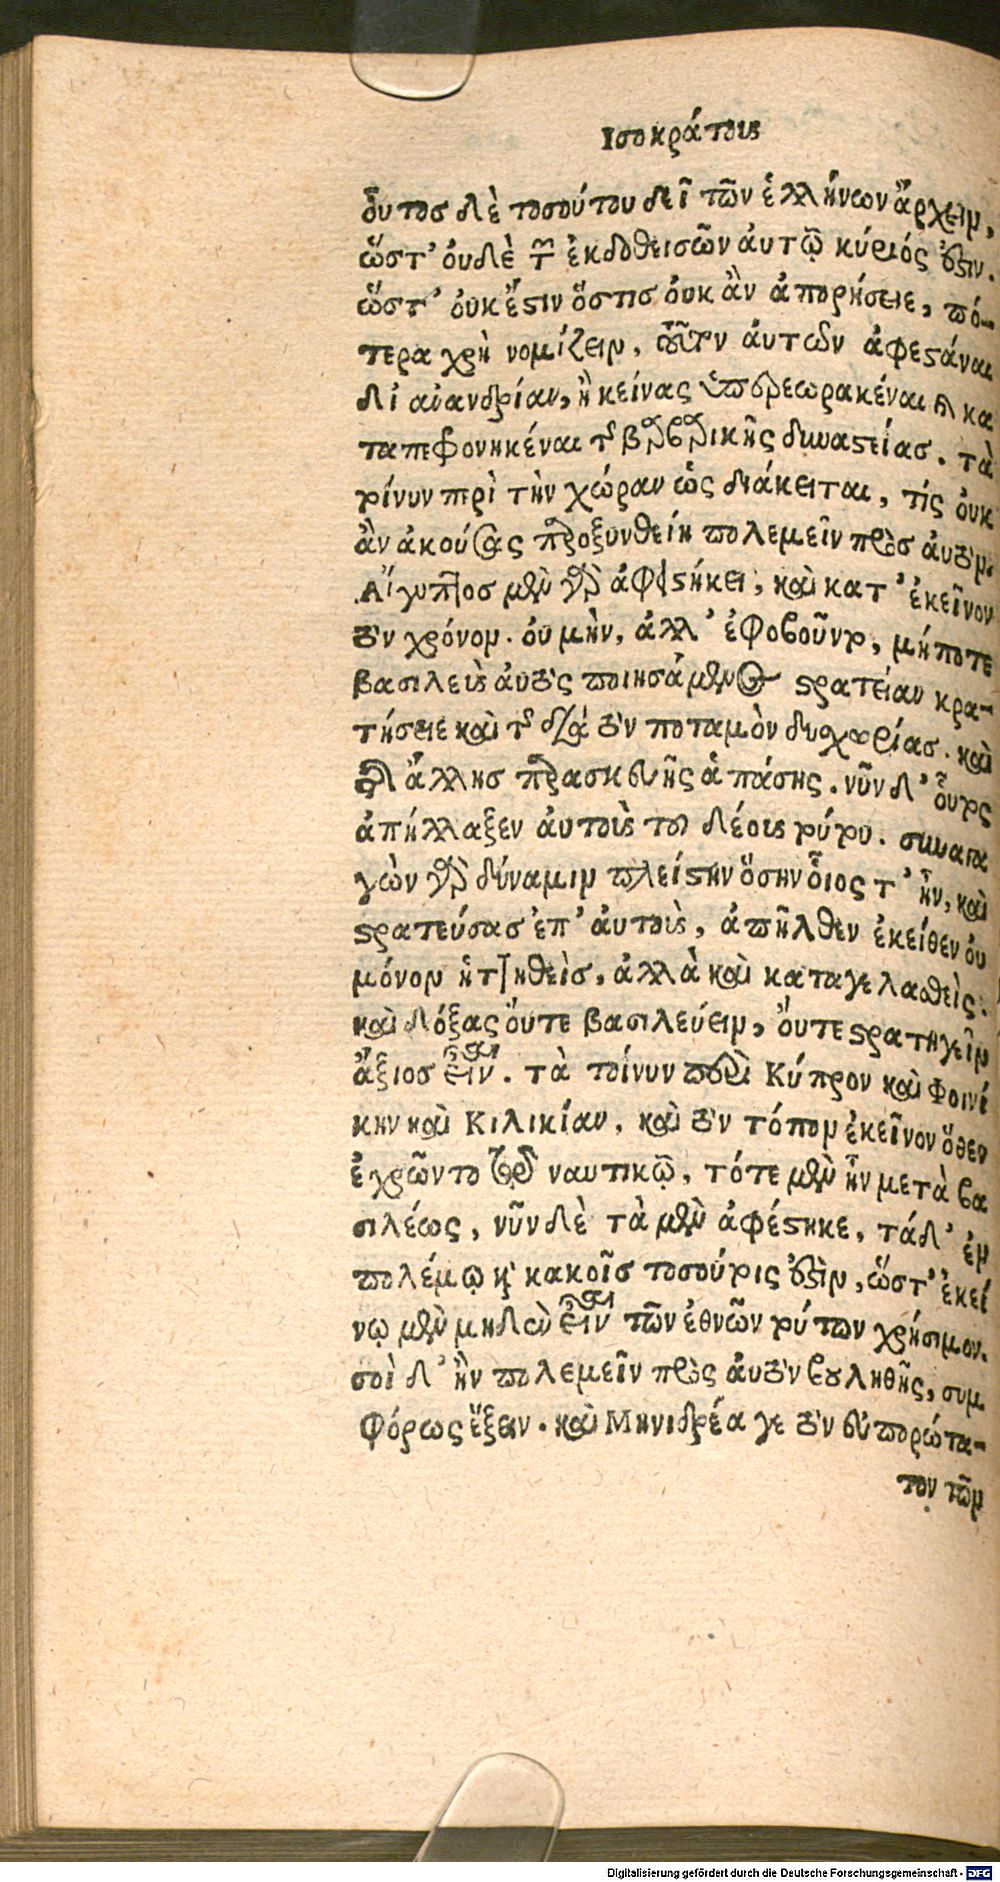 Ἰσοκράτους
οὗτος δὲ τοσούτου δεῖ τῶν ἑλλήνων ἄρχειν,
ὥστ' οὐδὲ τῶν ἐκδοθεισῶν αὐτῷ κύριός ἐστιν.
ὥστ' οὐκ ἔστιν ὅστις οὐκ ἂν ἀπορήσειε, πό-
τερα χρὴ νομίζειν, τούτων αὐτῶν ἀφεστάναι
δι' ἀνανδρίαν, ἢ κείνας ὑπερεωρακέναι καὶ κα
ταπεφρονηκέναι τῆς βαρβαρικῆς δυναστείας. τὰ
τοίνυν περὶ τὴν χώραν ὡς διάκειται, τίς οὐκ
ἂν ἀκούσας παροξυνθείη πολεμεῖν πρὸς αὐτόν.
Αἴγυπτος μὲν γὰρ ἀφειστήκει, καὶ κατ' ἐκεῖνον
τὸν χρόνον. οὐ μὴν, ἀλλ' ἐφοβοῦντο, μήποτε
βασιλεὺς αὐτὸς ποιησάμενος στρατείαν κρα-
τήσειε καὶ τῆς διὰ τὸν ποταμὸν δυσχωρίας. καὶ
τῆς ἄλλης παρασκευῆς ἁπάσης. νῦν δ' οὗτος
ἀπήλλαξεν αὐτοὺς τοῦ δέους τούτου. συναγα
γὼν γὰρ δύναμιν πλείστην ὅσην οἷός τ' ἦν, καὶ
στρατεύσας ἐπ' αὐτοὺς, ἀπῆλθεν ἐκεῖθεν οὐ
μόνον ἡττηθεὶς, ἀλλὰ καὶ καταγελασθεὶς.
καὶ δόξας οὔτε βασιλεύειν, οὔτε στρατηγεῖν
ἄξιος εἶναι. τὰ τοίνυν περὶ Κύπρον καὶ Φοινί
κην καὶ Κιλικίαν, καὶ τὸν τόπον ἐκεῖνον ὅθεν
ἐχρῶντο τῷ ναυτικῷ, τότε μὲν ἦν μετὰ βα
σιλέως, νῦν δὲ τὰ μὲν ἀφέστηκε, τὰ δ' ἐν
πολέμῳ καὶ κακοῖς τοσούτοις ἐστὶν, ὥστ' ἐκεί
νῳ μὲν μηδὲν εἶναι τῶν ἐθνῶν τούτων χρήσιμον.
σοὶ δ' ἢν πολεμεῖν πρὸς αὐτὸν βουληθῇς, συμ
φόρως ἕξειν. καὶ Μηνιδρέα γε τὸν εὐπορώτα-
τον τῶν
Digitalisierung gefördert durch die Deutsche Forschungsgemeinschaft - DFG